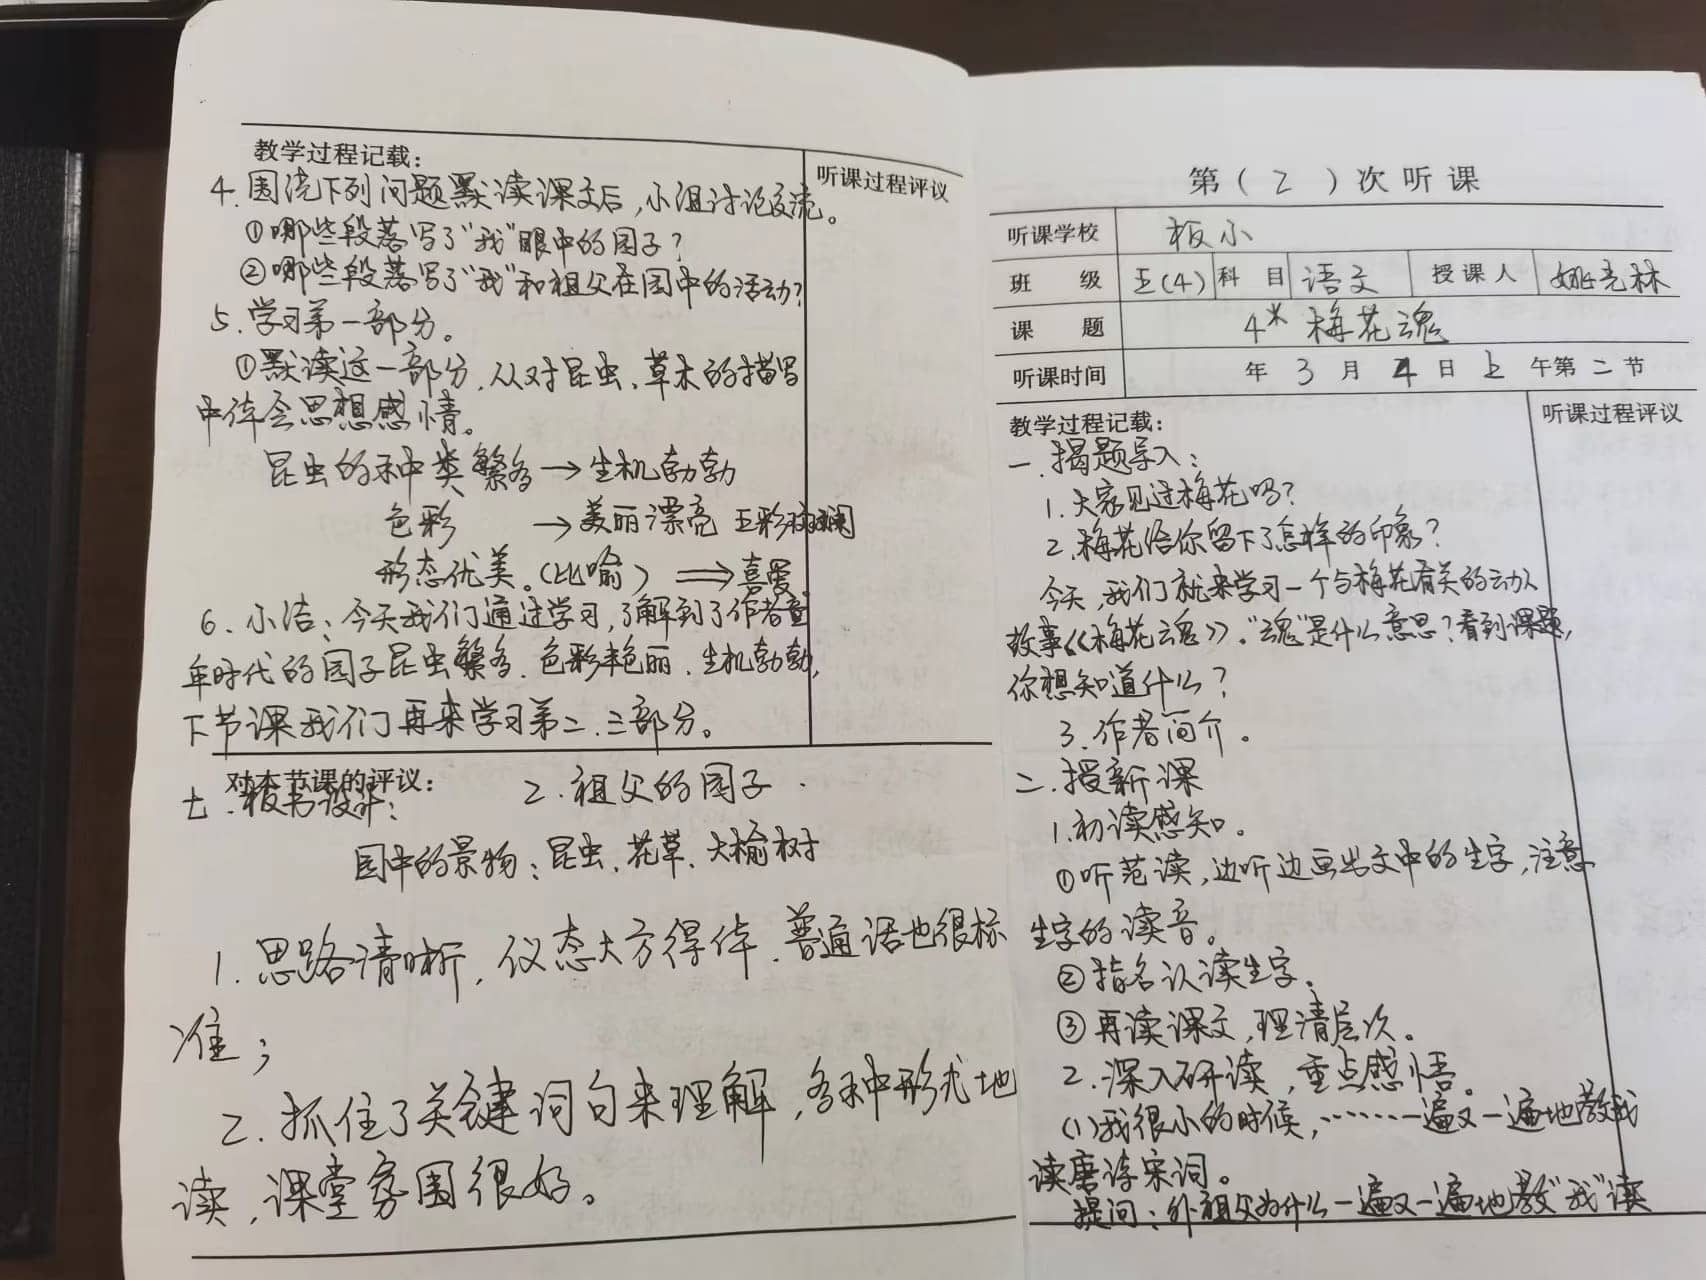 教学过程记载：
听课过程评议
4.围绕下列问题默读课文后，小组讨论交流。
①哪些段落写了“我”眼中的园子？
②哪些段落写了“我”和祖父在园中的活动？
5.学习第一部分。
①默读这一部分，从对昆虫、草木的描写
中体会思想感情。
昆虫的种类繁多→生机勃勃
色彩 →美丽漂亮 五彩斑斓
形态优美。（比喻）⟹喜爱。
6.小结：今天我们通过学习，了解到了作者童
年时代的园子昆虫繁多、色彩艳丽、生机勃勃，
下节课我们再来学习第二、三部分。
对本节课的评议：
七.板书设计： 2.祖父的园子
园中的景物：昆虫、花草、大榆树
1.思路清晰，仪态大方得体、普通话也很标
准；
2.抓住了关键词句来理解，各种形式地
读，课堂氛围很好。
第（2）次听课
听课学校 板小
班 级 五(4) 科 目 语文 授课人
课 题 4* 梅花魂
听课时间 年 3 月 4 日 上 午第 二 节
教学过程记载：
听课过程评议
一.揭题导入：
1.大家见过梅花吗？
2.梅花给你留下了怎样的印象？
今天，我们就来学习一个与梅花有关的动人
故事《梅花魂》。“魂”是什么意思？看到课题，
你想知道什么？
3.作者简介。
二.授新课
1.初读感知。
①听范读，边听边画出文中的生字，注意
生字的读音。
②指名认读生字。
③再读课文，理清层次。
2.深入研读，重点感悟。
(1)我很小的时候，……一遍又一遍地教我
读唐诗宋词。
提问：外祖父为什么一遍又一遍地教“我”读